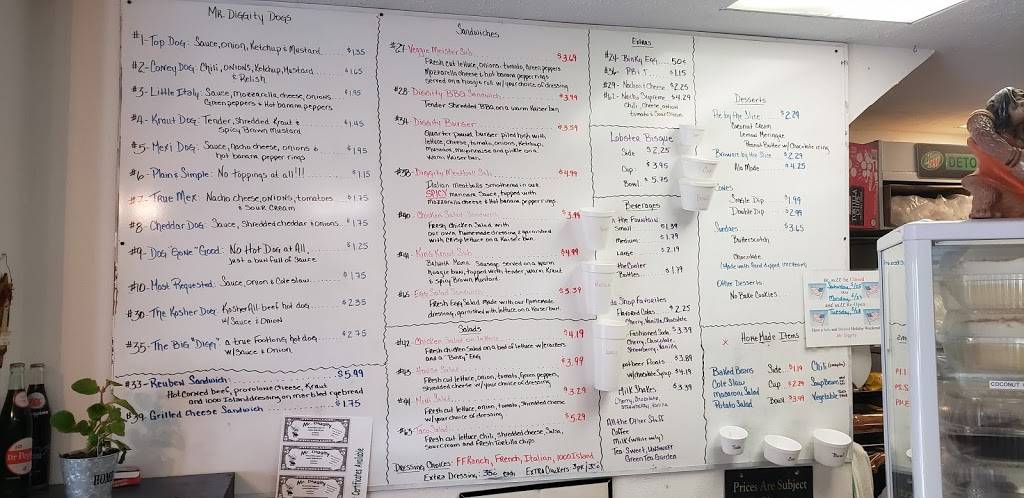 Mr. Diggity Dogs
#1-Top Dog: Sauce, onion, Ketchup & Mustard $1.35
#2-Coney Dog: Chili, onions, Ketchup, Mustard & Relish $1.65
#3-Little Italy: Sauce, Mozzarella cheese, onions
Green peppers & Hot banana peppers $1.95
#4-Kraut Dog: Tender, Shredded Kraut &
Spicy Brown Mustard $1.45
#5-Meri Dog: Sauce, Nacho cheese, onions &
hot banana pepper rings $1.95
#6-Plain & Simple: No toppings at all!!! $1.15
#7-True Mex: Nacho cheese, onions, tomatoes
& Sour Cream $1.75
#8-Cheddar Dog: Sauce, Shredded cheddar & onions $1.75
#9-Dog "Gone" Good: No Hot Dog at All,
Just a bun full of Sauce $1.25
#10-Most Requested: Sauce, Onion & Coleslaw $1.75
#30-The Kosher Dog: Kosher All-beef hot dog
w/Sauce & Onion $2.35
#35-The Big "Digg" a true footlong hot dog
w/Sauce & Onion $2.75
#33-Reuben Sandwich $5.99
Hot Corned beef, provolone cheese, Kraut
and 1000 Island dressing on marbled rye bread
#39-Grilled Cheese Sandwich $1.75
Sandwiches
#27-Veggie Meister Sub $3.69
Fresh cut lettuce, onions, tomato, Green peppers
Mozzarella cheese & hot banana pepper rings
served on a hoagie roll w/your choice of dressing
#28-Diggity BBQ Sandwich $3.99
Tender Shredded BBQ on a warm Kaiser bun
#34-Diggity Burger $3.59
Quarter pound burger piled high with
lettuce, cheese, tomato, onions, Ketchup,
Mustard, Mayonnaise and pickle on a
warm Kaiser bun.
#38-Diggity Meatball Sub $4.99
Italian meatballs smothered in our
SPICY marinara Sauce, topped with
Mozzarella cheese & hot banana pepper rings.
#40-Chicken Salad Sandwich $3.99
Fresh Chicken Salad with
our own homemade dressing & garnished
with crisp lettuce on a Kaiser bun.
King Kraut Sub $4.99
Sausage served on a warm
hoagie bun, topped with tender, warm Kraut
& Spicy Brown Mustard
Egg Salad Sandwich $3.39
Fresh Egg Salad made with our homemade
dressing, garnished with lettuce on a Kaiser bun.
Salads
#42-Chicken Salad on Lettuce $4.19
Fresh chicken Salad on a bed of lettuce w/crackers
and a "Binky" Egg
House Salad $3.99
Fresh cut lettuce, onion, tomato, Green pepper,
shredded cheese w/your choice of dressing
Mini Salad $3.29
Fresh cut lettuce, onion, tomato, Shredded cheese
w/your choice of dressing
Taco Salad $5.29
Fresh cut lettuce, chili, shredded cheese, Salsa,
sour cream and fresh tortilla chips
Dressing Choices: FF Ranch, French, Italian, 1000 Island
Extra Dressing: 35¢ each Extra Crackers: 3pk 35¢
Extras
#24-Binky Egg .50¢
#36-PB & J $1.15
#29-Nacho & Cheese $2.25
Nacho Supreme $4.29
Chili, Cheese, onion
tomato & Sour Cream
Lobster Bisque
Side $2.25
Cup: $3.95
Bowl: $5.75
Beverages
the Fountain:
Small $1.39
Medium $1.79
Large $2.19
the Cooler
Bottles $1.79
Shop Favorites
Flavored Colas $2.25
Cherry, Vanilla, Chocolate
Fashioned Soda $3.39
Cherry, Chocolate,
Strawberry, Vanilla
Floats $3.89
w/chocolate Syrup $4.19
Milk Shakes $3.99
All the Other Stuff
Coffee
Milk (white only)
Tea: Sweet, UnSweet
Green Tea Garden
Desserts
Pie by the Slice $2.29
Coconut Cream
Lemon Meringue
Peanut Butter w/Chocolate icing
Brownie by the Slice $2.29
Ala Mode $4.25
Cones
Single Dip $1.99
Double Dip $2.99
Sundaes $3.65
Butterscotch
Chocolate
(Made with hand dipped ice cream)
Other Desserts:
No Bake Cookies
Home Made Items
Baked Beans
Cole Slaw
Macaroni Salad
Potato Salad
Side $1.19
Cup $2.29
Bowl $3.99
Chili
Soup Beans
Vegetable
Prices Are Subject
DETO
COCONUT
HOME
Dr Pepper
Mr. Diggity
Certificates Available